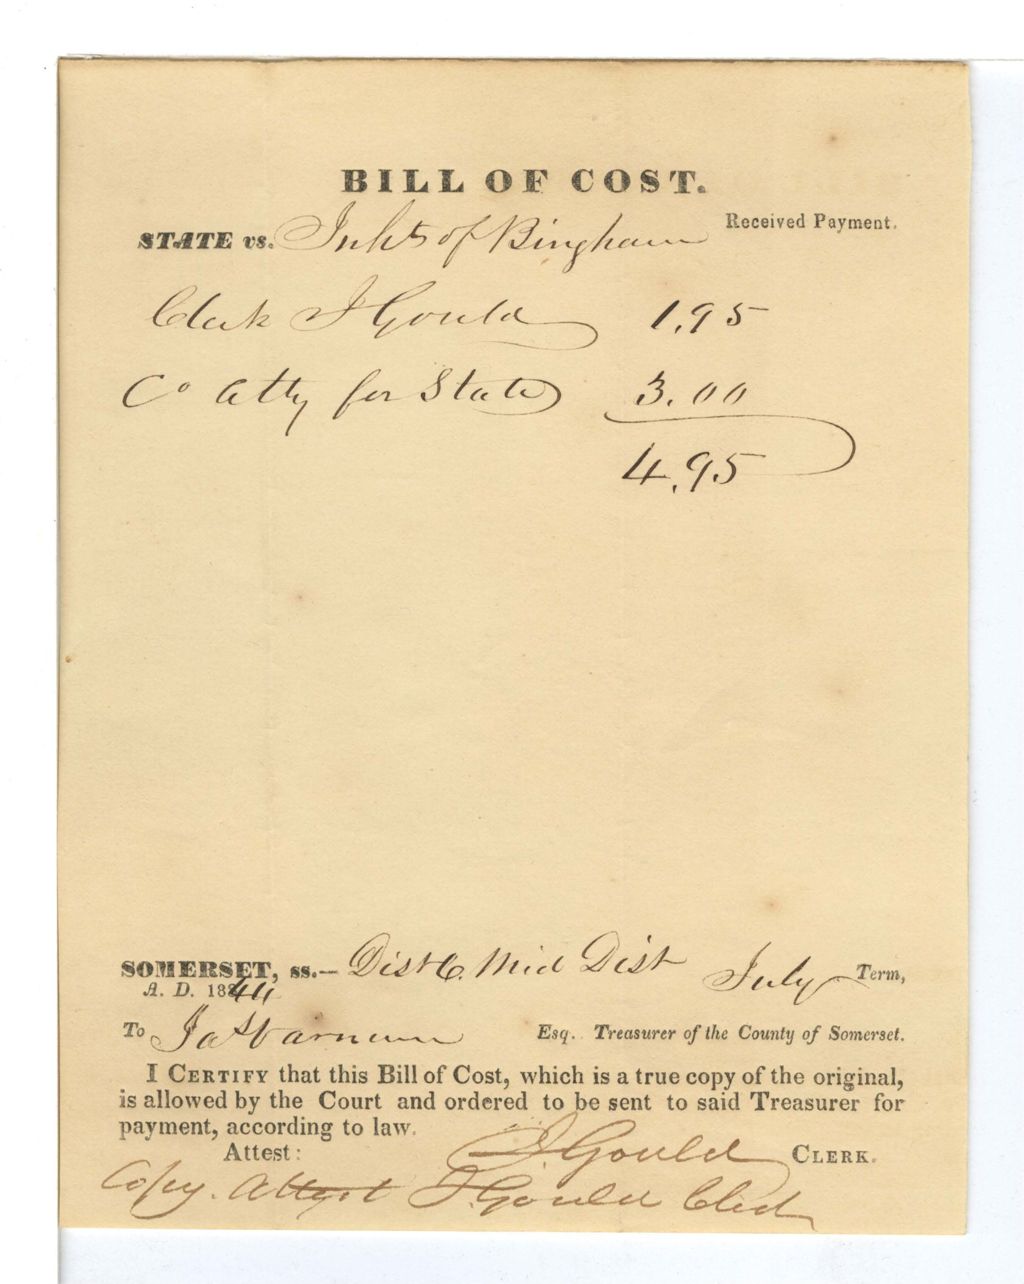 BILL OF COST.
STATE vs. Inhts of Bingham
Received Payment.
Clerk J Gould 1.95
Co Atty for State 3.00
4.95
SOMERSET, ss.— Dist C. Mid Dist July Term,
A. D. 1844
To Varnum Esq. Treasurer of the County of Somerset.
I CERTIFY that this Bill of Cost, which is a true copy of the original,
is allowed by the Court and ordered to be sent to said Treasurer for
payment, according to law.
Attest: J Gould CLERK.
Copy. Attest J Gould Clerk